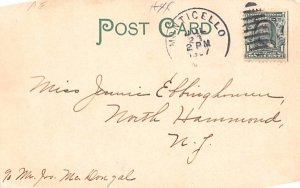 POST CARD
MONTICELLO
2 PM
Miss Jennie Ebbinghousen
North Hammond,
N. J.
% Mr. Jos. MacDougal